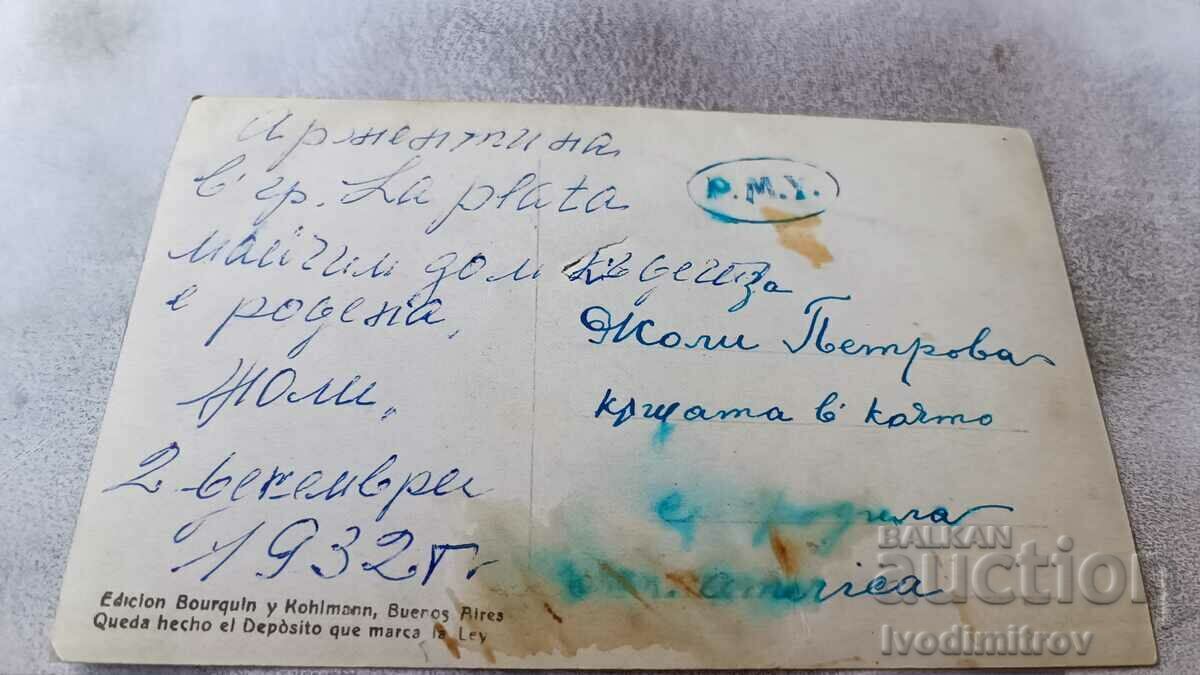 Аржентина
в гр. La plata
майчим дом
е родена,
Жоли,,
2 декември
1932 г.
Edicion Bourquin y Kohlmann, Buenos Aires
Queda hecho el Depòsito que marca la Ley
P.M.Y.
за
Жоли Петрова
къщата в' която
е родила
america
BALKAN
auction
Ivodimitrov